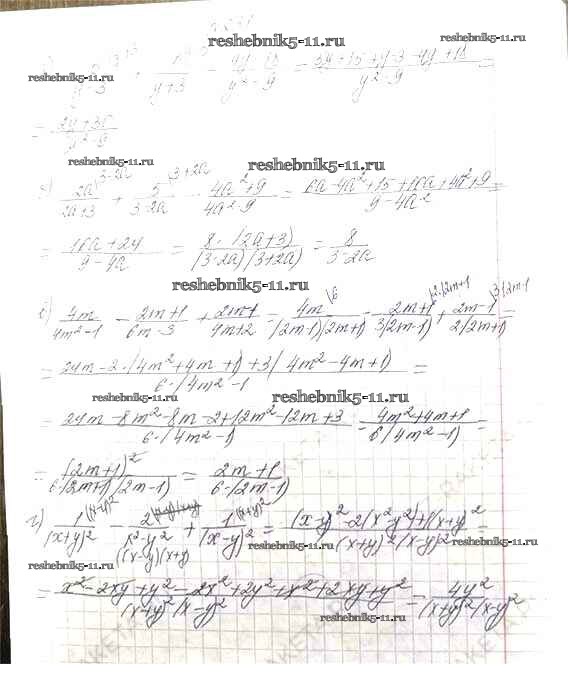 reshebnik5-11.ru
reshebnik5-11.ru
y+3 y²-9 = y²-9 =
reshebnik5-11.ru
= 2y+3 / y²-9
reshebnik5-11.ru reshebnik5-11.ru
2a\3-2a / 2a+3 + 5\3+2a / 3-2a - 4a²+9 / 4a²-9 = 6a-4a²+15+10a+4a²+9 / 9-4a² =
= 16a+24 / 9-4a = 8·(2a+3) / (3-2a)(3+2a) = 8 / 3-2a
reshebnik5-11.ru
4m / 4m²-1 - 2m+1 / 6m-3 + 2m-1 / 4m+2 = 4m\6 / (2m-1)(2m+1) - 2m+1\2·(2m+1 / 3(2m-1) + 2m-1\3(2m-1 / 2(2m+1) =
= 24m-2·(4m²+4m+1)+3(4m²-4m+1) / 6·(4m²-1 =
reshebnik5-11.ru reshebnik5-11.ru
= 24m-8m²-8m-2+12m²-12m+3 / 6·(4m²-1) = 4m²+4m+1 / 6(4m²-1) =
= (2m+1)² / 6·(2m+1)(2m-1) = 2m+1 / 6·(2m-1)
reshebnik5-11.ru
г) 1\(x-y)² / (x+y)² - 2 / x²-y² + 1\(x+y)² / (x-y)² = (x-y)²-2(x²-y²)+(x+y)² / (x+y)²(x-y)² =
(x-y)(x+y)
reshebnik5-11.ru reshebnik5-11.ru reshebnik5-11.ru
= x²-2xy+y²-2x²+2y²+x²+2xy+y² / (x+y)²(x-y)² = 4y² / (x+y)²(x-y)²
reshebnik5-11.ru